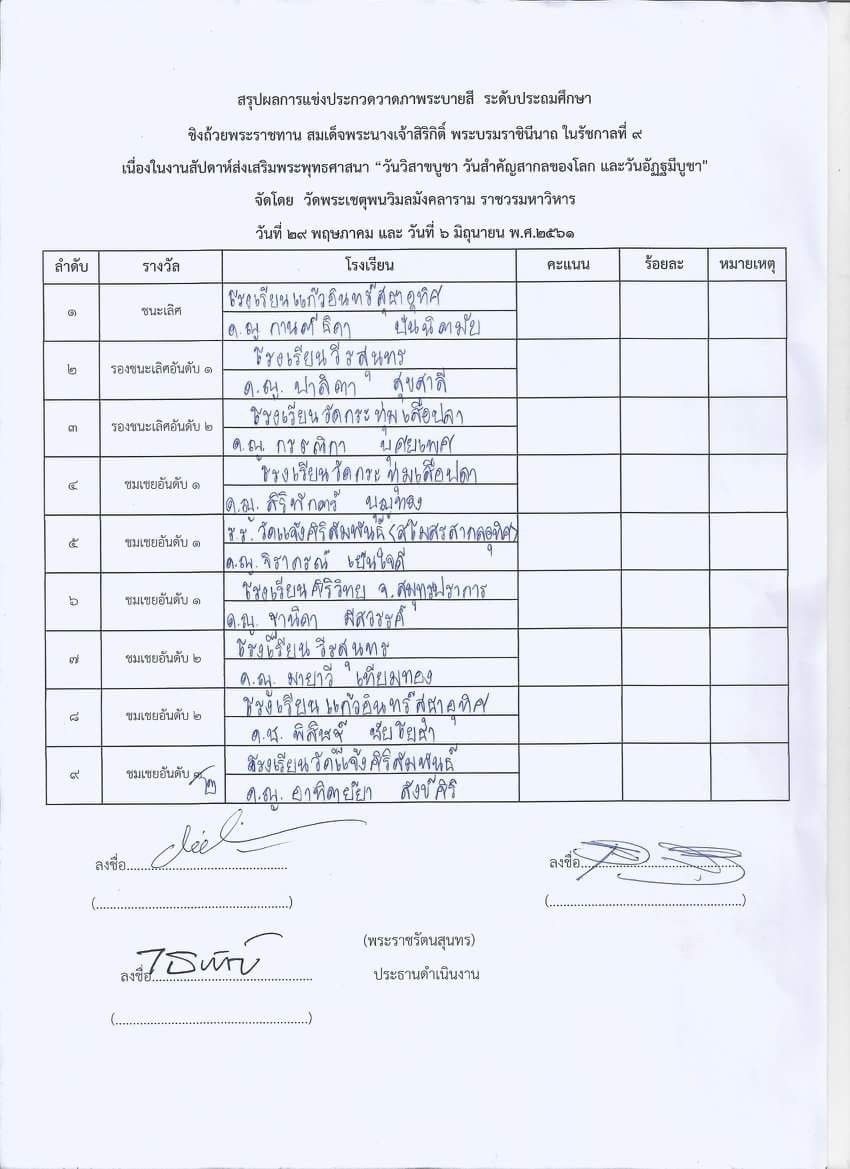 สรุปผลการแข่งประกวดวาดภาพระบายสี ระดับประถมศึกษา
ชิงถ้วยพระราชทาน สมเด็จพระนางเจ้าสิริกิติ์ พระบรมราชินีนาถ ในรัชกาลที่ ๙
เนื่องในงานสัปดาห์ส่งเสริมพระพุทธศาสนา “วันวิสาขบูชา วันสำคัญสากลของโลก และวันอัฏฐมีบูชา"
จัดโดย วัดพระเชตุพนวิมลมังคลาราม ราชวรมหาวิหาร
วันที่ ๒๙ พฤษภาคม และ วันที่ ๖ มิถุนายน พ.ศ.๒๕๖๑
ลำดับ รางวัล โรงเรียน คะแนน ร้อยละ หมายเหตุ
๑ ชนะเลิศ โรงเรียนแก้วอินทร์สุธาอุทิศ
ด.ญ.
๒ รองชนะเลิศอันดับ ๑ โรงเรียนวีรสุนทร
ด.ญ. ปาลิตา สุขสาลี
๓ รองชนะเลิศอันดับ ๒ โรงเรียนวัดกระทุ่มเสือปลา
ด.ญ. กรรณิกา บุศยเพศ
๔ ชมเชยอันดับ ๑ โรงเรียนวัดกระทุ่มเสือปลา
ด.ญ. สิริพักตร์ บุญทอง
๕ ชมเชยอันดับ ๑ ร.ร. วัดแจ้งศิริสัมพันธ์ (สโมสรสากลอุทิศ)
ด.ญ. จิราภรณ์ เย็นใจดี
๖ ชมเชยอันดับ ๑ โรงเรียนศิริวิทย จ.สมุทรปราการ
ด.ญ. ฐานิดา มีสวรรค์
๗ ชมเชยอันดับ ๒ โรงเรียนวีรสุนทร
ด.ญ. มายาวี เทียมทอง
๘ ชมเชยอันดับ ๒ โรงเรียนแก้วอินทร์สุธาอุทิศ
ด.ช. พิสิษฐ์
๙ ชมเชยอันดับ ๒ โรงเรียนวัดแจ้งศิริสัมพันธ์
ด.ญ. อาทิตยิยา สังข์ศิริ
ลงชื่อ ลงชื่อ
(พระราชรัตนสุนทร)
ลงชื่อ ประธานดำเนินงาน